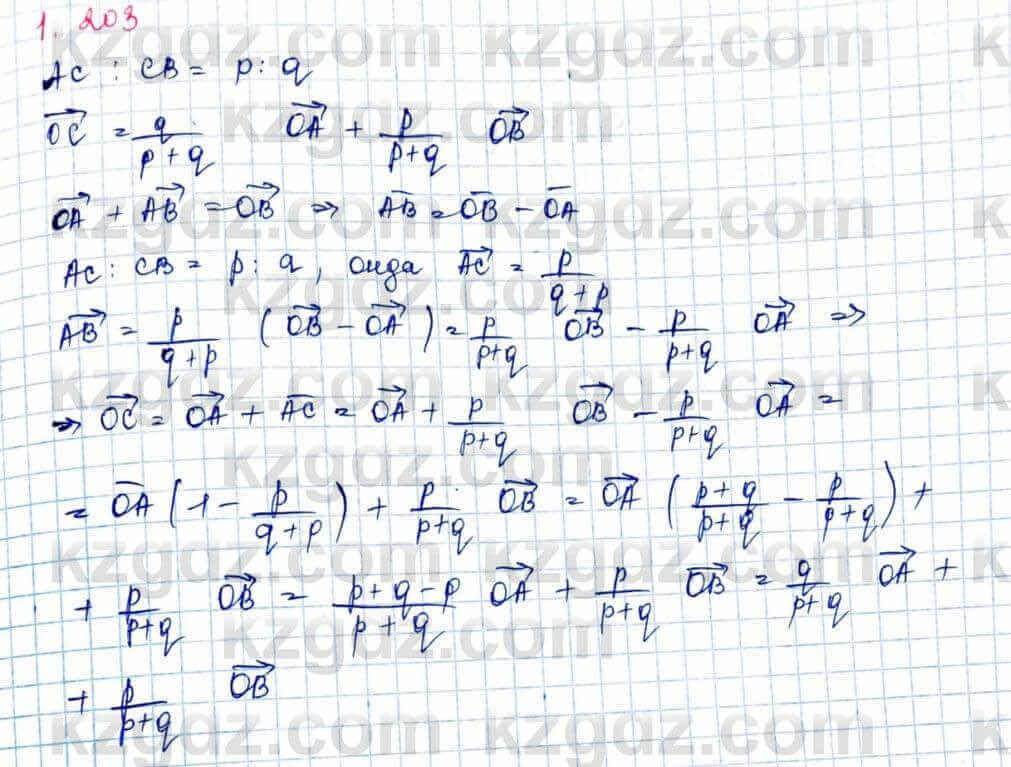 1. 203
AC : CB = p : q
$\overrightarrow{OC} = \frac{q}{p+q} \overrightarrow{OA} + \frac{p}{p+q} \overrightarrow{OB}$
$\overrightarrow{OA} + \overrightarrow{AB} = \overrightarrow{OB} \Rightarrow \overline{AB} = \overline{OB} - \overline{OA}$
AC : CB = p : q, онда $\overrightarrow{AC} = \frac{p}{q+p}$
$\overrightarrow{AB} = \frac{p}{q+p} (\overrightarrow{OB} - \overrightarrow{OA}) = \frac{p}{p+q} \overrightarrow{OB} - \frac{p}{p+q} \overrightarrow{OA} \Rightarrow$
$\Rightarrow \overrightarrow{OC} = \overrightarrow{OA} + \overrightarrow{AC} = \overrightarrow{OA} + \frac{p}{p+q} \overrightarrow{OB} - \frac{p}{p+q} \overrightarrow{OA} =$
$= \overrightarrow{OA} (1 - \frac{p}{q+p}) + \frac{p}{p+q} \overrightarrow{OB} = \overrightarrow{OA} (\frac{p+q}{p+q} - \frac{p}{p+q}) +$
$+ \frac{p}{p+q} \overrightarrow{OB} = \frac{p+q-p}{p+q} \overrightarrow{OA} + \frac{p}{p+q} \overrightarrow{OB} = \frac{q}{p+q} \overrightarrow{OA} +$
$+ \frac{p}{p+q} \overrightarrow{OB}$
kzgdz.com